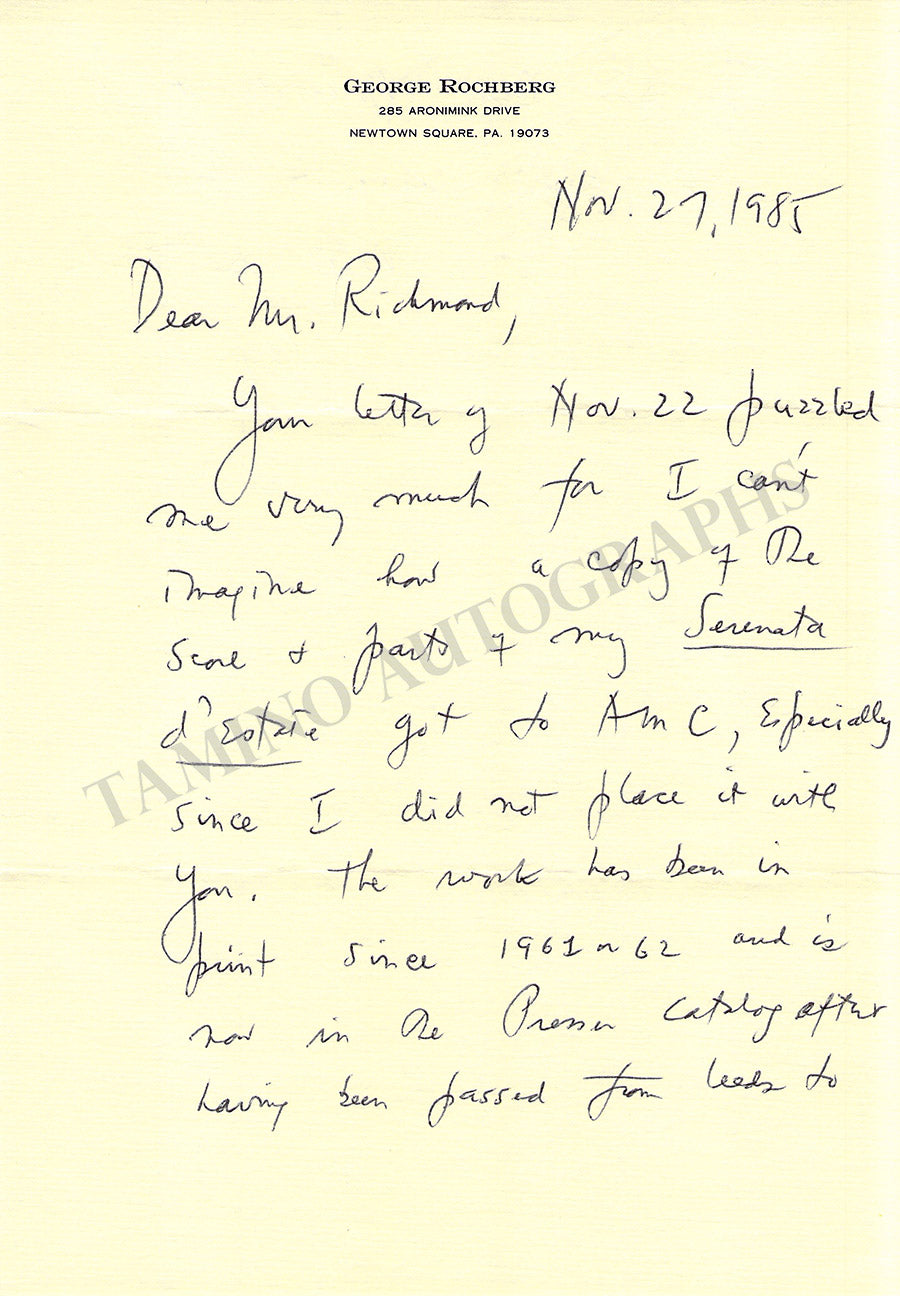 GEORGE ROCHBERG
285 ARONIMINK DRIVE
NEWTOWN SQUARE, PA. 19073
Nov. 27, 1985
Dear Mr. Richmond,
Your letter of Nov. 22 puzzled
me very much for I can't
imagine how a copy of the
score & parts of my Serenata
d'Estate got to AMC, Especially
since I did not place it with
you. The work has been in
print since 1961 or 62 and is
now in the Presser Catalog after
having been passed from Leeds to
TAMINO AUTOGRAPHS